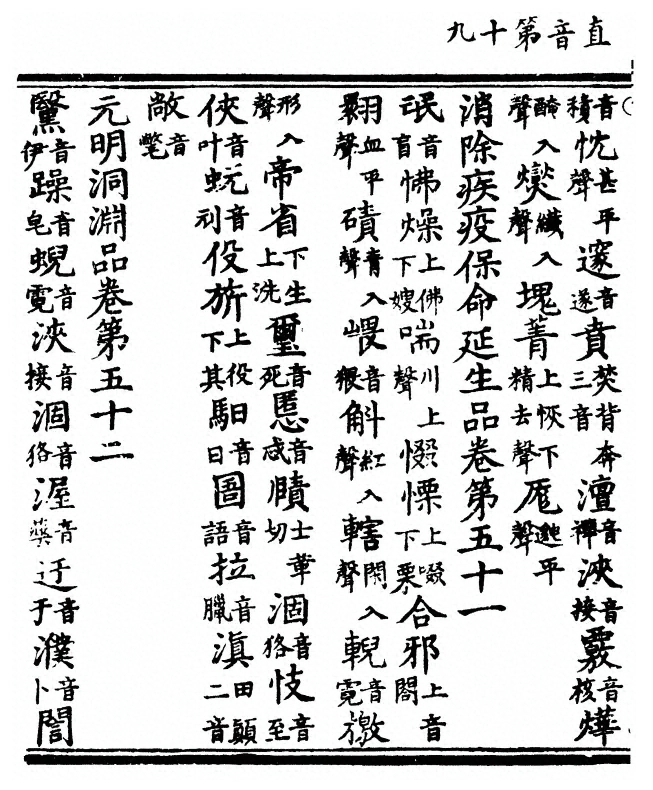 直音第十九
音積忱甚平聲邃音遂賁焚背奔三音澶音禪浹音接覈音核燁
醃入聲爕纖入聲塊菁上恢下精去聲卮平聲
消除疾疫保命延生品卷第五十一
氓音盲怫燥上佛下嫂喘川上聲惙慄上啜下栗合邪上音閤
翾血平聲磧青入聲嵔音猥斛紅入聲轄閑入聲輗音霓檄
形入聲帝省下生上洗璽音死慝音忒賾士革切涸音狢忮音至
俠音叶音利役旂上役下其馹音日圄音語拉音臘滇田顛二音
敞音氅
元明洞淵品卷第五十二
鷖音伊躁音皂蜺音霓浹音接涸音狢渥音迂音于濮音卜誾